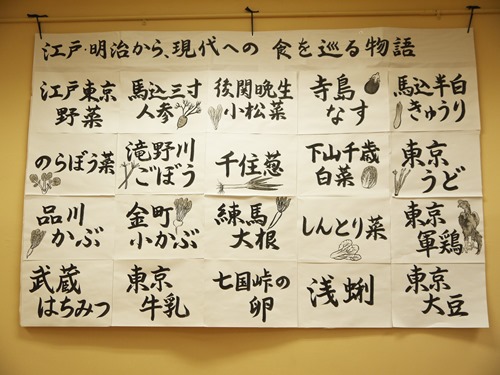 江戸・明治から、現代への 食を巡る物語
江戸東京
野菜
馬込三寸
人参
後関晩生
小松菜
寺島
なす
馬込半白
きゅうり
のらぼう菜
滝野川
ごぼう
千住葱
下山千歳
白菜
東京
うど
品川
かぶ
金町
小かぶ
練馬
大根
しんとり菜
東京
軍鶏
武蔵
はちみつ
東京
牛乳
七国峠の
卵
浅蜊
東京
大豆